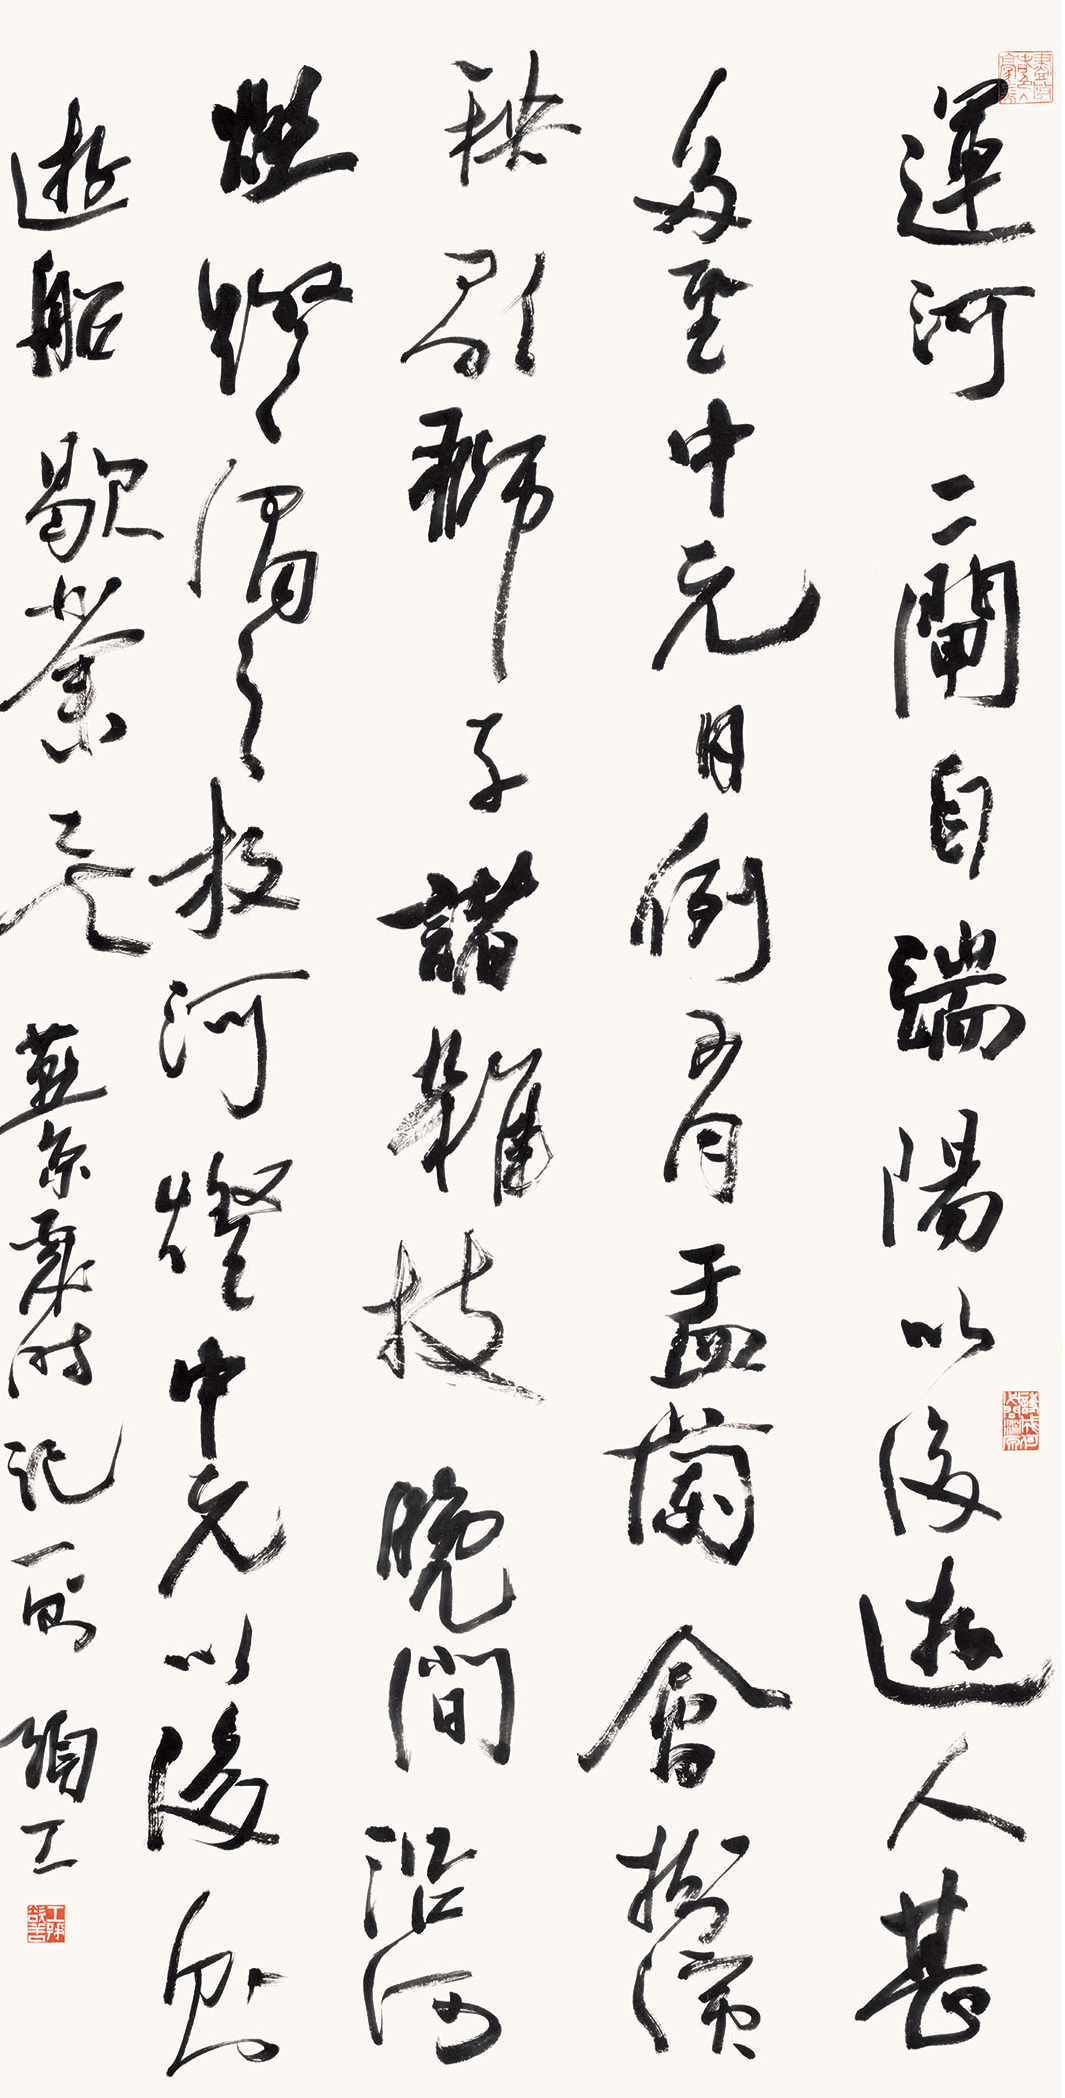 運河二閘自端陽以後遊人甚
多至中元日例有盂蘭會扮演
秧歌獅子諸雜技晚間沿河
燃燈謂之放河燈中元以後則
遊船歇業矣燕京歲時記一則陶工